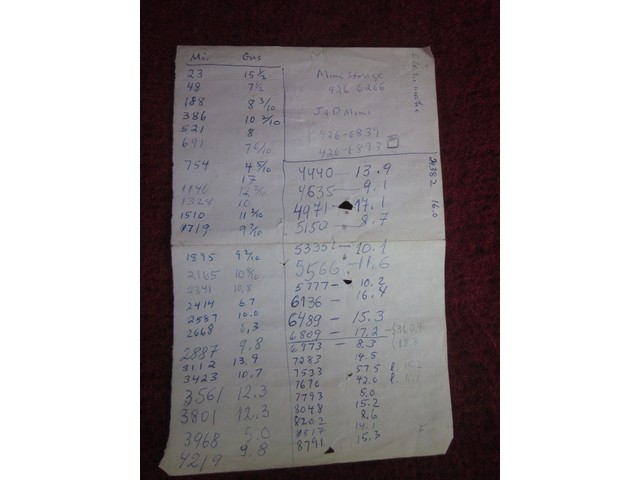 Mi. Gas
23 15 1/2
48 7 1/2
188 8 3/10
386 10 3/10
521 8
691 7 6/10
754 4 8/10
17
1146
1328 10
1510
1719 9 7/10
1895
2165
2341 10.8
2414 6.7
2587 10.0
2668 6,3
2887 9.8
3112 13.9
3423 10.7
3561 12.3
3801 12.3
3968 5.0
4219 9.8
Mini Storage
426 6266
J+D Mini
426-6839
426-6893
4440 — 13.9
4635 — 9.1
4971 — 17.1
5150 — 8.7
5335 — 10.1
5566 — 11.6
5777 — 10.2
6136 — 16.4
6489 — 15.3
6809 — 17.2
6973 — 8.3
7283 14.5
7533 57.5
7676 42.0
7793 5.0
8048 15.2
8202 8.6
8517 14.1
8791 15.3
16.0